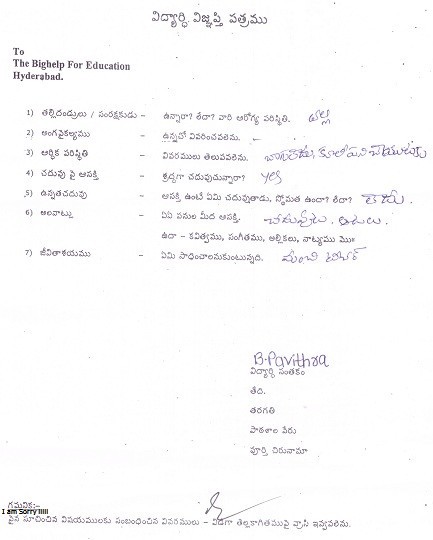 విద్యార్థి విజ్ఞప్తి పత్రము
To
The Bighelp For Education
Hyderabad.
1) తల్లిదండ్రులు / సంరక్షకుడు - ఉన్నారా? లేదా? వారి ఆరోగ్య పరిస్థితి.
2) అంగవైకల్యము - ఉన్నచో వివరించవలెను. -
3) ఆర్థిక పరిస్థితి - వివరములు తెలుపవలెను. బాగులేదు,
4) చదువు పై ఆసక్తి - శ్రద్ధగా చదువుచున్నారా? yes
5) ఉన్నతచదువు - ఆసక్తి ఉంటే ఏమి చదువుతాడు, స్తోమత ఉందా? లేదా? లేదు.
6) అలవాట్లు - ఏఏ పనుల మీద ఆసక్తి. చదువుట, ఆటలు.
ఉదా - కవిత్వము, సంగీతము, అల్లికలు, నాట్యము మొ॥
7) జీవితాశయము - ఏమి సాధించాలనుకుంటున్నది. మంచి టీచర్
B.Pavithra
విద్యార్థి సంతకం
తేది.
తరగతి
పాఠశాల పేరు
పూర్తి చిరునామా
గమనిక:-
I am Sorry !!!!!
పైన సూచించిన విషయములకు సంబంధించిన వివరములు - విడిగా తెల్లకాగితముపై వ్రాసి ఇవ్వవలెను.